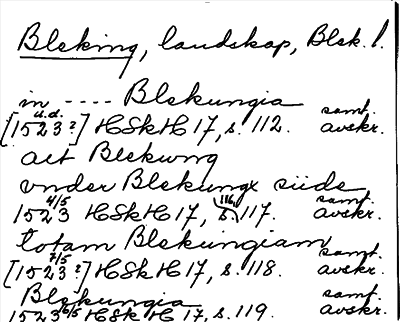 Bleking, landskap, Blek. l.
in ---- Blekungia
[1523? u.d.] HSkH 17, s. 112. samt. avskr.
ait Blekwng
vnder Blekungx siide
1523 4/5 HSkH 17, s. 116, 117. samt. avskr.
totam Blekungiam
[1523? 7/5] HSkH 17, s. 118. samt. avskr.
Blekungia
1523 6/5 HSkH 17, s. 119. samt. avskr.